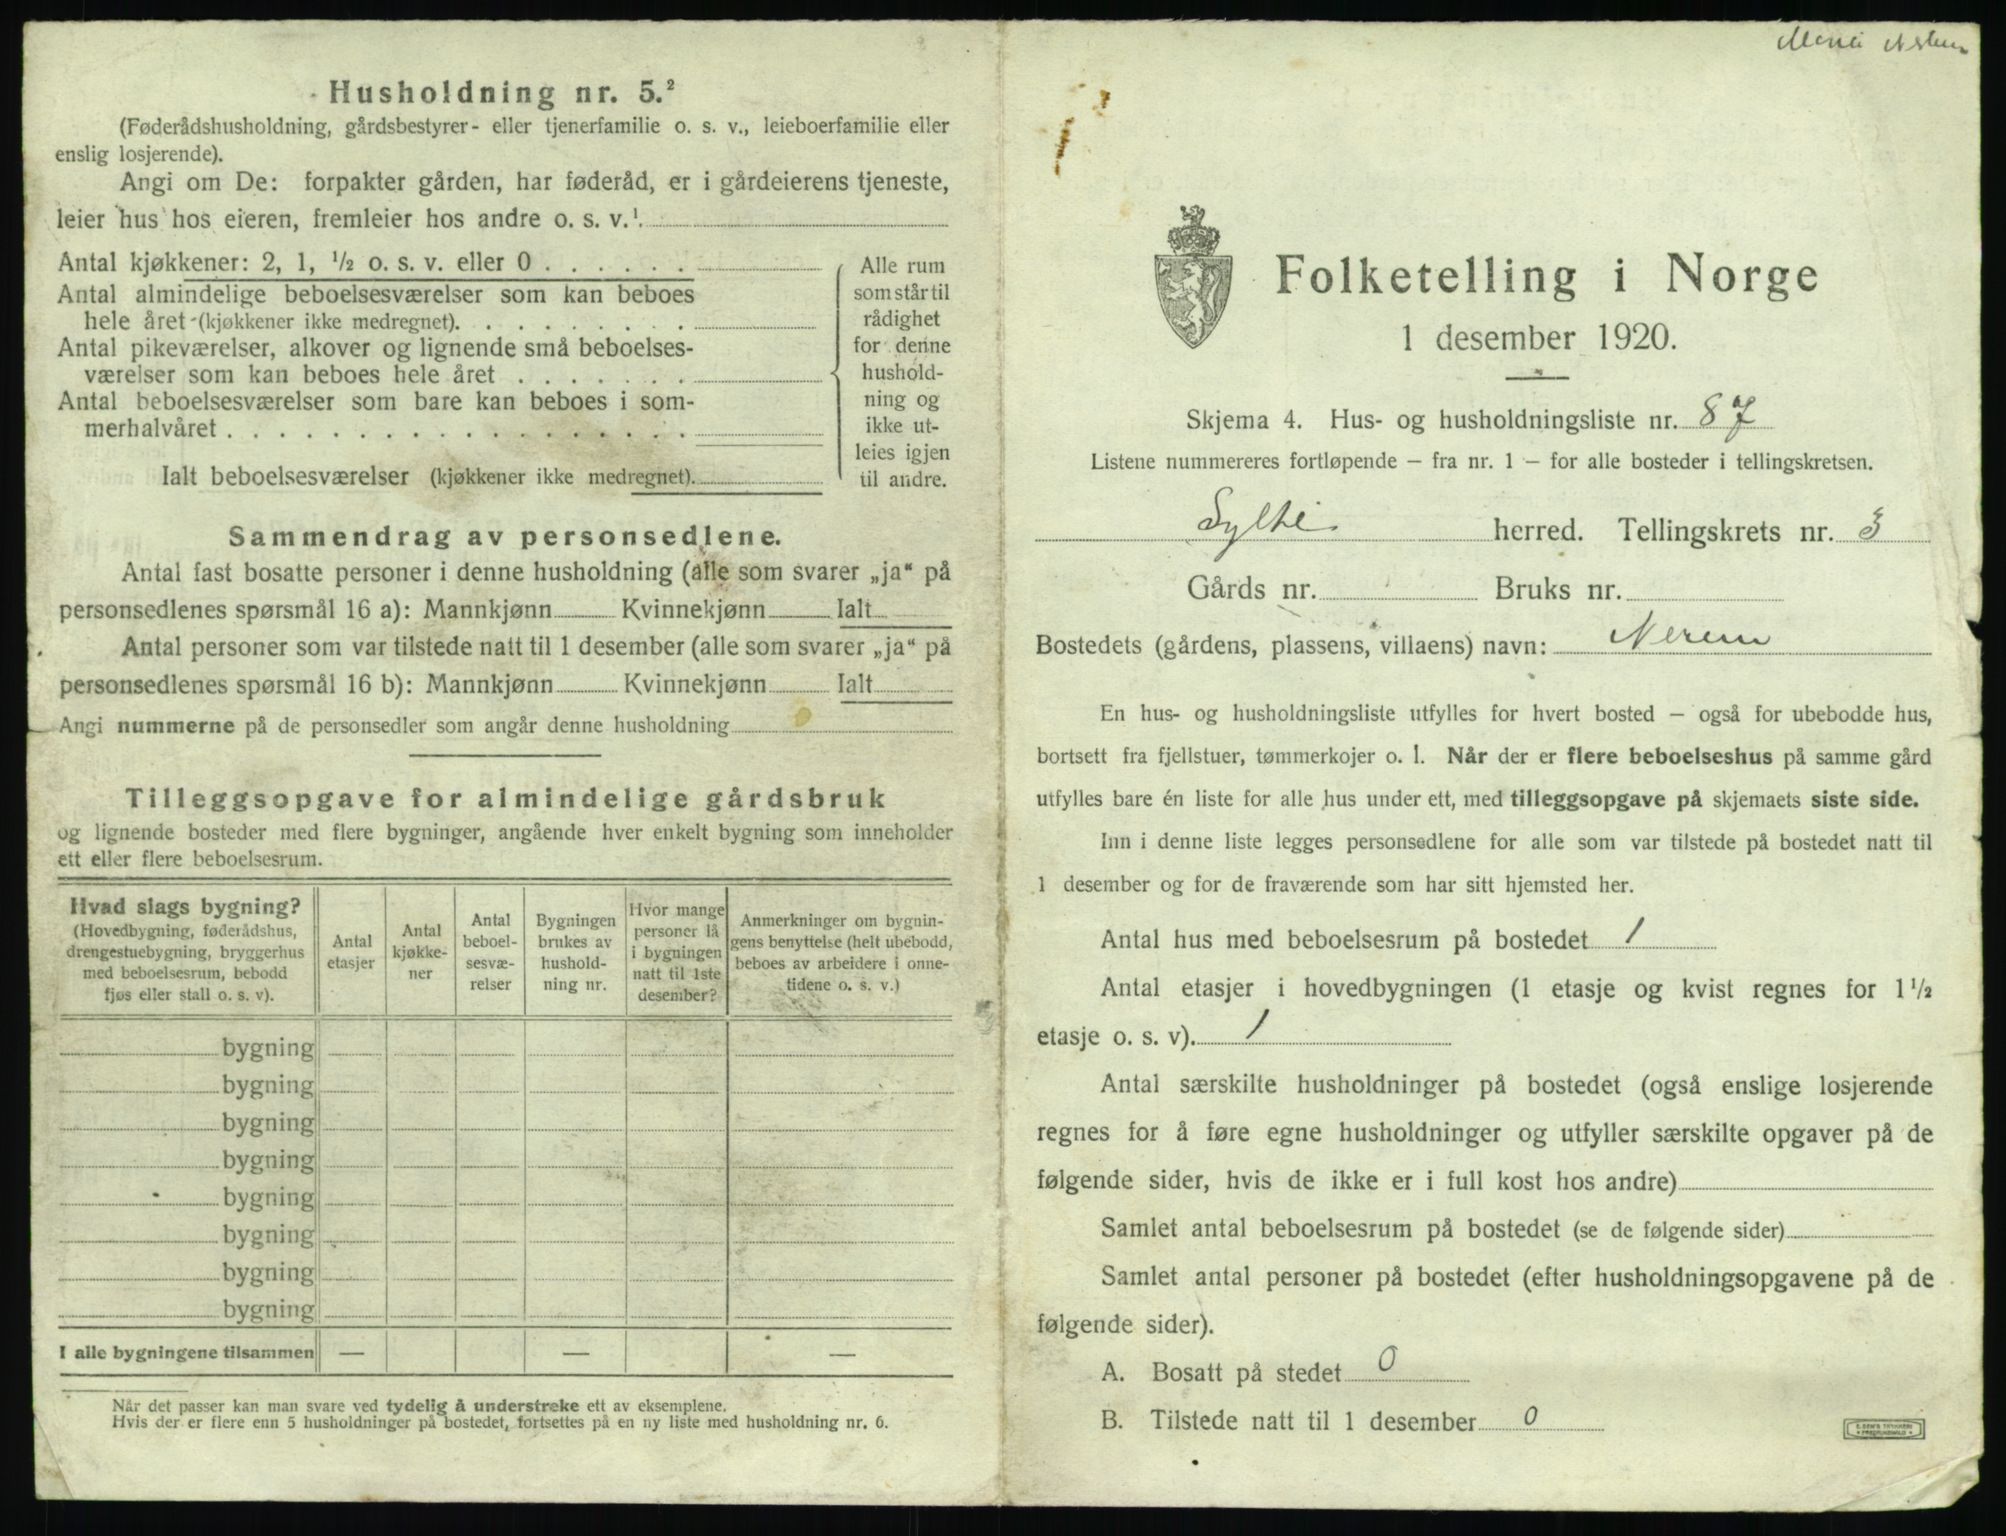 Husholdning nr. 5.²
(Føderådshusholdning, gårdsbestyrer- eller tjenerfamilie o. s. v., leieboerfamilie eller
enslig losjerende).
Angi om De: forpakter gården, har føderåd, er i gårdeierens tjeneste,
leier hus hos eieren, fremleier hos andre o. s. v.¹.
Antal kjøkkener: 2, 1, ½ o. s. v. eller 0
Antal almindelige beboelsesværelser som kan beboes
hele året (kjøkkener ikke medregnet).
Antal pikeværelser, alkover og lignende små beboelses-
værelser som kan beboes hele året
Antal beboelsesværelser som bare kan beboes i som-
merhalvåret
Ialt beboelsesværelser (kjøkkener ikke medregnet).
Alle rum
som står til
rådighet
for denne
hushold-
ning og
ikke ut-
leies igjen
til andre.
Sammendrag av personsedlene.
Antal fast bosatte personer i denne husholdning (alle som svarer „ja“ på
personsedlenes spørsmål 16 a): Mannkjønn Kvinnekjønn Ialt
Antal personer som var tilstede natt til 1 desember (alle som svarer „ja“ på
personsedlenes spørsmål 16 b): Mannkjønn Kvinnekjønn Ialt
Angi nummerne på de personsedler som angår denne husholdning
Tilleggsopgave for almindelige gårdsbruk
og lignende bosteder med flere bygninger, angående hver enkelt bygning som inneholder
ett eller flere beboelsesrum.
Hvad slags bygning?
(Hovedbygning, føderådshus,
drengestuebygning, bryggerhus
med beboelsesrum, bebodd
fjøs eller stall o. s. v).
Antal
etasjer
Antal
kjøkke-
ner
Antal
beboel-
sesvæ-
relser
Bygningen
brukes av
hushold-
ning nr.
Hvor mange
personer lå
i bygningen
natt til 1ste
desember?
Anmerkninger om bygnin-
gens benyttelse (helt ubebodd,
beboes av arbeidere i onne-
tidene o. s. v.)
bygning
bygning
bygning
bygning
bygning
bygning
bygning
bygning
I alle bygningene tilsammen — — —
Når det passer kan man svare ved tydelig å understreke ett av eksemplene.
Hvis der er flere enn 5 husholdninger på bostedet, fortsettes på en ny liste med husholdning nr. 6.
Folketelling i Norge
1 desember 1920.
Skjema 4. Hus- og husholdningsliste nr. 87
Listene nummereres fortløpende – fra nr. 1 – for alle bosteder i tellingskretsen.
Sylte herred. Tellingskrets nr. 3
Gårds nr. Bruks nr.
Bostedets (gårdens, plassens, villaens) navn: Nerem
En hus- og husholdningsliste utfylles for hvert bosted – også for ubebodde hus,
bortsett fra fjellstuer, tømmerkojer o. l. Når der er flere beboelseshus på samme gård
utfylles bare én liste for alle hus under ett, med tilleggsopgave på skjemaets siste side.
Inn i denne liste legges personsedlene for alle som var tilstede på bostedet natt til
1 desember og for de fraværende som har sitt hjemsted her.
Antal hus med beboelsesrum på bostedet 1
Antal etasjer i hovedbygningen (1 etasje og kvist regnes for 1½
etasje o. s. v). 1
Antal særskilte husholdninger på bostedet (også enslige losjerende
regnes for å føre egne husholdninger og utfyller særskilte opgaver på de
følgende sider, hvis de ikke er i full kost hos andre)
Samlet antal beboelsesrum på bostedet (se de følgende sider)
Samlet antal personer på bostedet (efter husholdningsopgavene på de
følgende sider).
A. Bosatt på stedet 0
B. Tilstede natt til 1 desember 0